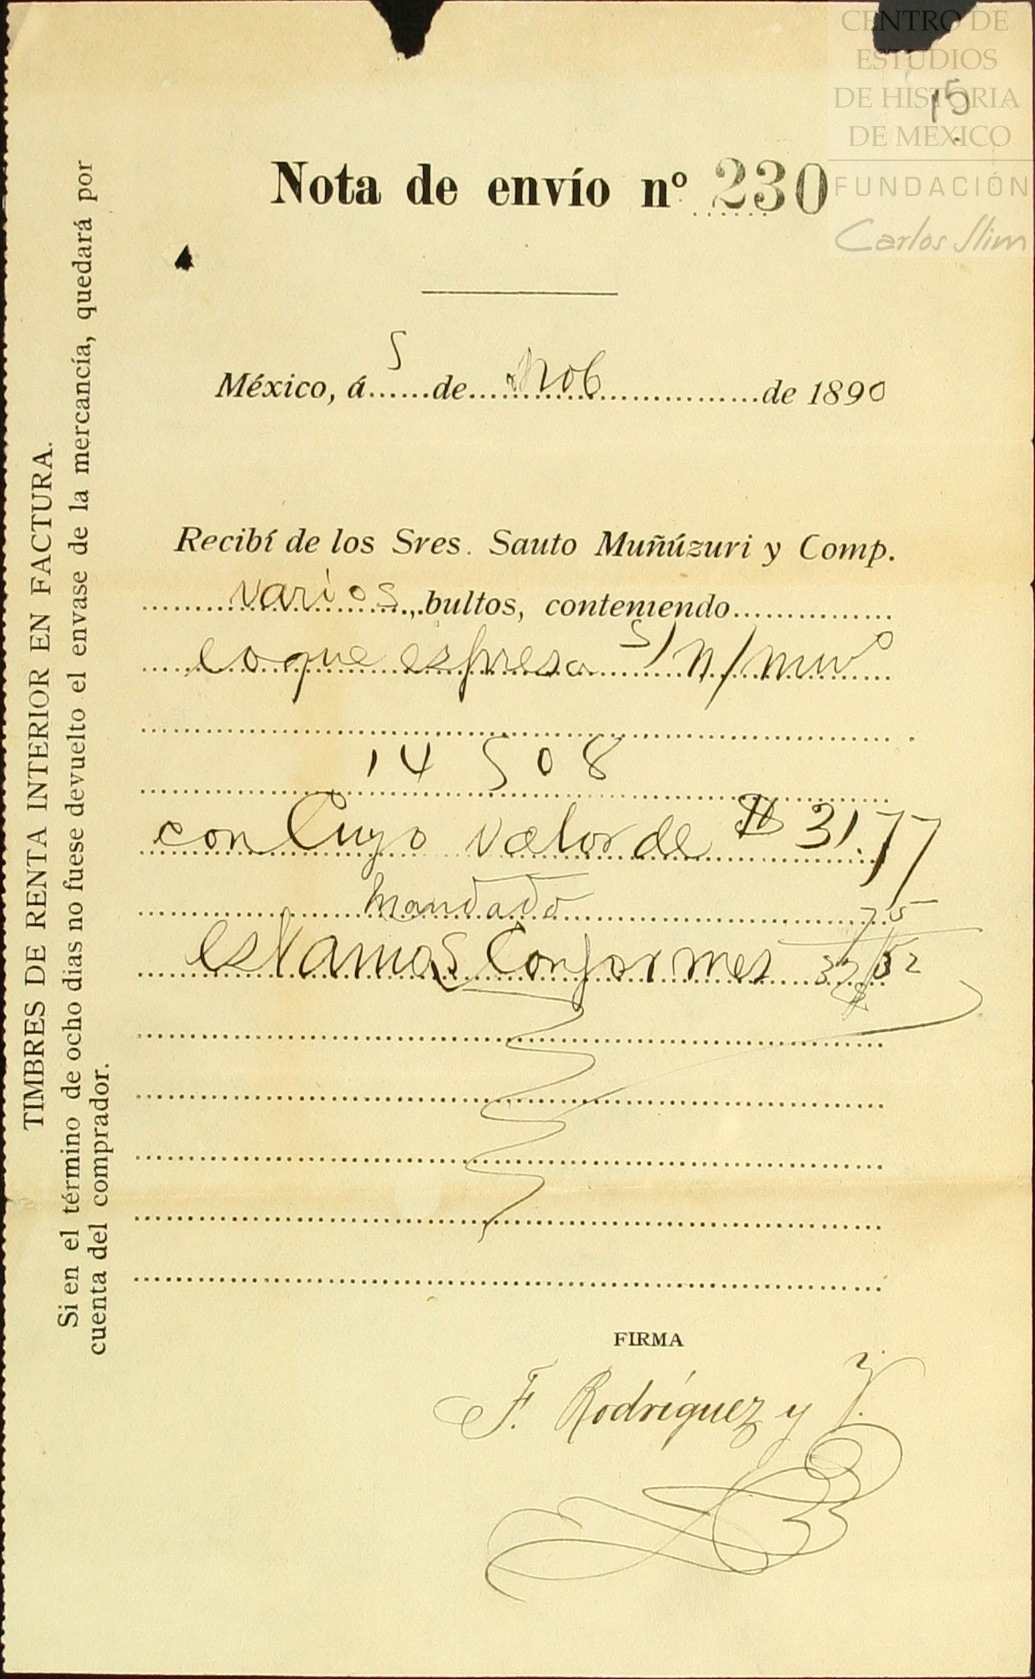 CENTRO DE
ESTUDIOS
DE HISTORIA
DE MÉXICO
FUNDACIÓN
Carlos Slim
15
Nota de envío nº 230
México, á 5 de Nob de 1890
Recibí de los Sres. Sauto Muñúzuri y Comp.
varios bultos, conteniendo
lo que espresa s/ n/
14508
con Cuyo valor de $ 31.77
mandado 75
estamos Conformes 32 52
FIRMA
F. Rodríguez y
TIMBRES DE RENTA INTERIOR EN FACTURA.
Si en el término de ocho dias no fuese devuelto el envase de la mercancía, quedará por
cuenta del comprador.